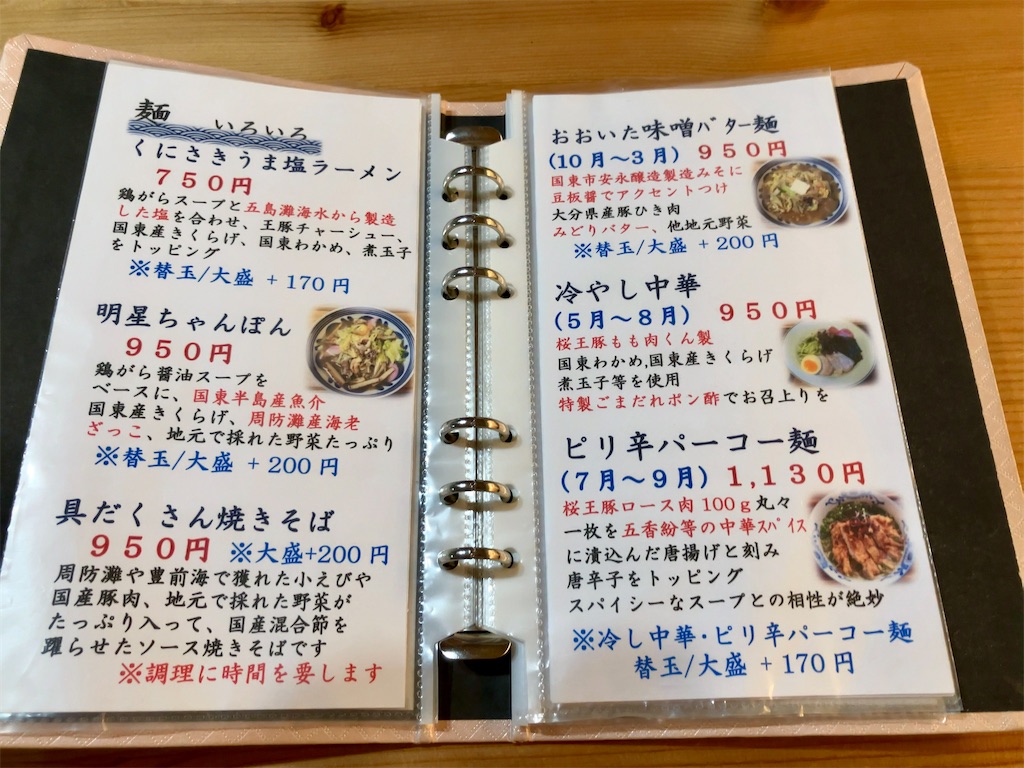 麺 いろいろ
くにさきうま塩ラーメン
７５０円
鶏がらスープと五島灘海水から製造
した塩を合わせ、王豚チャーシュー、
国東産きくらげ、国東わかめ、煮玉子
をトッピング
※替玉/大盛 + 170 円
明星ちゃんぽん
９５０円
鶏がら醤油スープを
ベースに、国東半島産魚介
国東産きくらげ、周防灘産海老
ざっこ、地元で採れた野菜たっぷり
※替玉/大盛 + 200 円
具だくさん焼きそば
９５０円 ※大盛+200 円
周防灘や豊前海で獲れた小えびや
国産豚肉、地元で採れた野菜が
たっぷり入って、国産混合節を
躍らせたソース焼きそばです
※調理に時間を要します
おおいた味噌ﾊﾞﾀｰ麺
(10 月～3 月) ９５０円
国東市安永醸造製造みそに
豆板醤でアクセントつけ
大分県産豚ひき肉
みどりバター、他地元野菜
※替玉/大盛 + 200 円
冷やし中華
(5 月～8 月) ９５０円
桜王豚もも肉くん製
国東わかめ,国東産きくらげ
煮玉子等を使用
特製ごまだれポン酢でお召上りを
ピリ辛パーコー麺
(7 月～9 月) １,１３０円
桜王豚ロース肉 100ｇ丸々
一枚を五香紛等の中華ｽﾊﾟｲｽ
に漬込んだ唐揚げと刻み
唐辛子をトッピング
スパイシーなスープとの相性が絶妙
※冷し中華・ピリ辛パーコー麺
替玉/大盛 + 170 円